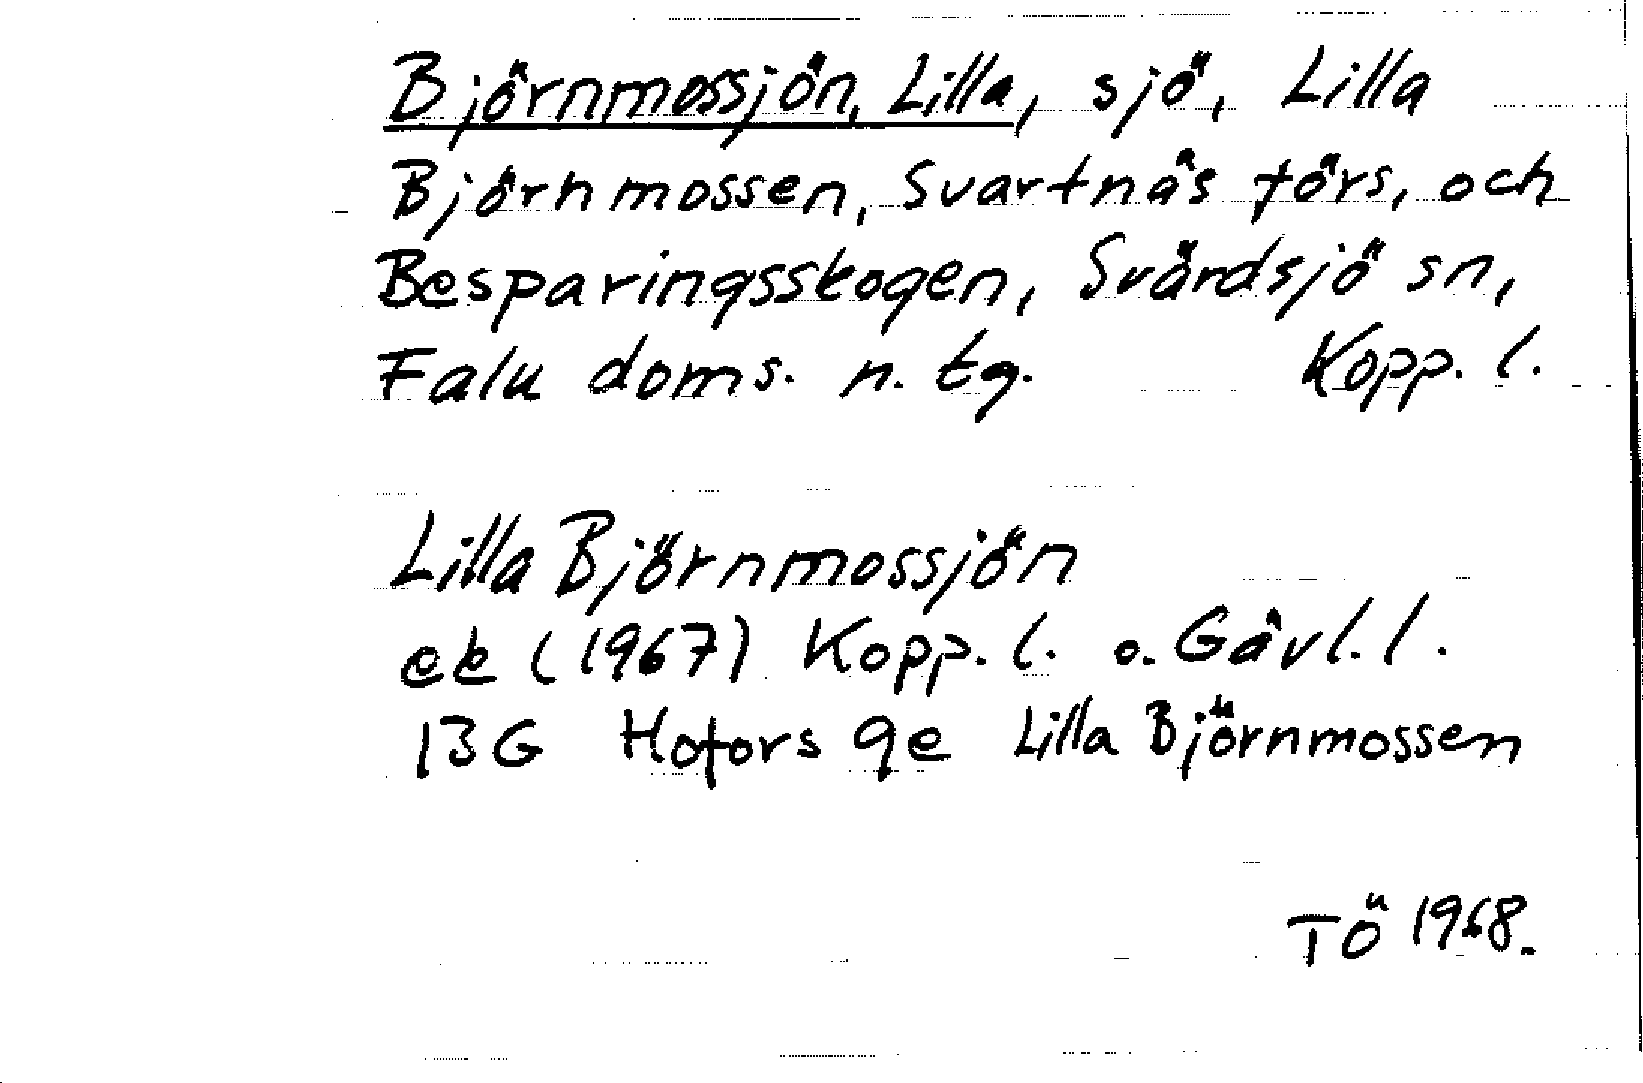 Björnmossjön, Lilla, sjö, Lilla
Björnmossen, Svartnäs förs, och
Besparingsskogen, Svärdsjö sn,
Falu doms. n. tg. Kopp. l.
Lilla Björnmossjön
ek (1967) Kopp. l. o. Gävl. l.
13G Hofors 9e Lilla Björnmossen
TÖ 1968.